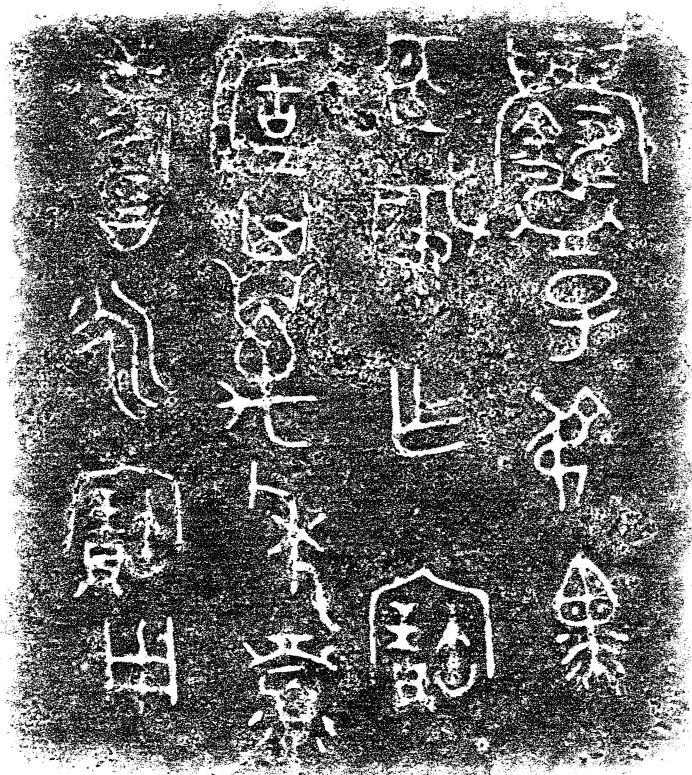 鑄子叔黑
臣肇乍寶
簠其萬年眉
壽永寶用